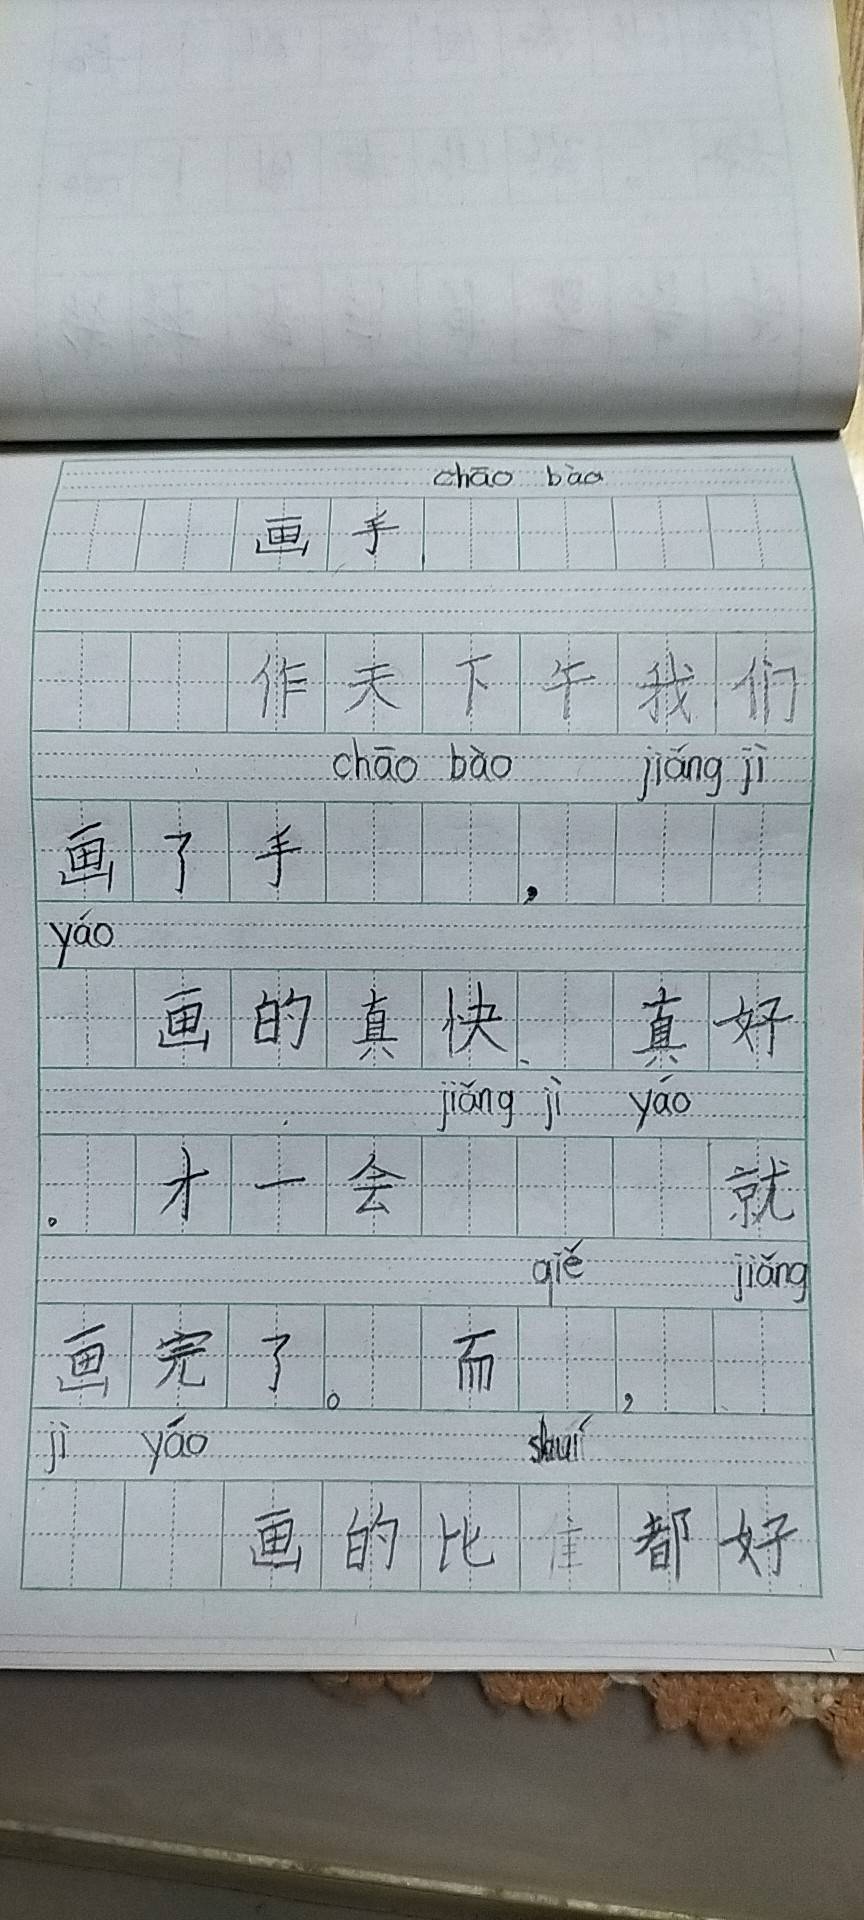 chāo bào
画手
作天下午我们
chāo bào jiǎng jì
画了手，
yáo
画的真快、真好
jiǎng jì yáo
。才一会就
qiě jiǎng
画完了。而，
jì yáo shuí
画的比隹都好